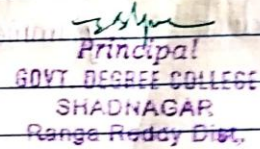 Principal
GOVT DEGREE COLLEGE
SHADNAGAR
Ranga Reddy Dist,